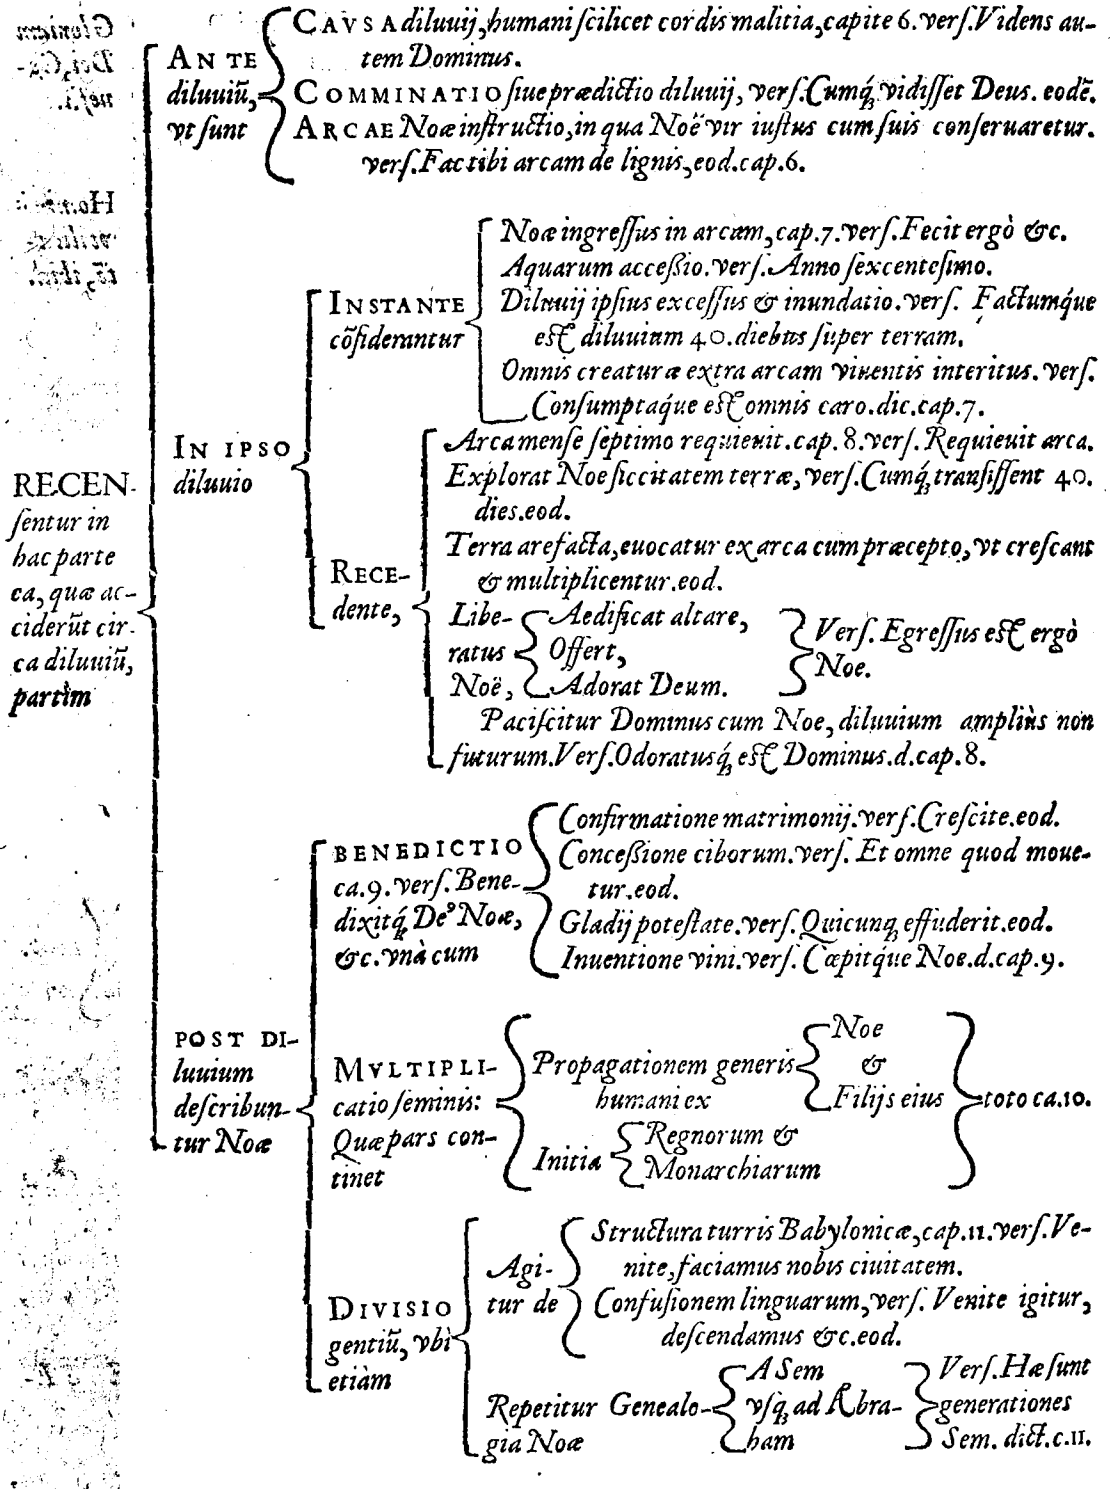 RECEN-
ſentur in
hac parte
ea, quæ ac-
ciderūt cir-
ca diluuiū,
partim
ANTE
diluuiū,
vt ſunt
CAVSA diluuij, humani ſcilicet cordis malitia, capite 6. verſ. Videns au-
tem Dominus.
COMMINATIO ſiue prædictio diluuij, verſ. Cumq́; vidiſſet Deus. eodē.
ARCAE Noæ inſtructio, in qua Noë vir iuſtus cum ſuis conſeruaretur.
verſ. Fac tibi arcam de lignis, eod. cap. 6.
IN IPSO
diluuio
INSTANTE
cōſiderantur
Noæ ingreſſus in arcam, cap. 7. verſ. Fecit ergò &c.
Aquarum acceſsio. verſ. Anno ſexcenteſimo.
Diluuij ipſius exceſſus & inundatio. verſ. Factumq́ue
eſt diluuium 40. diebus ſuper terram.
Omnis creaturæ extra arcam viuentis interitus. verſ.
Conſumptaq́ue eſt omnis caro. dic. cap. 7.
RECE-
dente,
Arca menſe ſeptimo requieuit. cap. 8. verſ. Requieuit arca.
Explorat Noe ſiccitatem terræ, verſ. Cumq́; tranſiſſent 40.
dies. eod.
Terra arefacta, euocatur ex arca cum præcepto, vt creſcant
& multiplicentur. eod.
Libe-
ratus
Noë,
Aedificat altare,
Offert,
Adorat Deum.
Verſ. Egreſſus eſt ergò
Noe.
Paciſcitur Dominus cum Noe, diluuium ampliùs non
futurum. Verſ. Odoratusq́; eſt Dominus. d. cap. 8.
POST DI-
luuium
deſcribun-
tur Noæ
BENEDICTIO
ca. 9. verſ. Bene-
dixitq́; Deꝰ Noæ,
&c. vnà cum
Confirmatione matrimonij. verſ. Creſcite. eod.
Conceſsione ciborum. verſ. Et omne quod moue-
tur. eod.
Gladij poteſtate. verſ. Quicunq; effuderit. eod.
Inuentione vini. verſ. Cœpitq́ue Noe. d. cap. 9.
MVLTIPLI-
catio ſeminis:
Quæ pars con-
tinet
Propagationem generis
humani ex
Noe
&
Filijs eius
Initia
Regnorum &
Monarchiarum
toto ca. 10.
DIVISIO
gentiū, vbi
etiàm
Agi-
tur de
Structura turris Babylonicæ, cap. 11. verſ. Ve-
nite, faciamus nobis ciuitatem.
Confuſionem linguarum, verſ. Venite igitur,
deſcendamus &c. eod.
Repetitur Genealo-
gia Noæ
A Sem
vſq́; ad Abra-
ham
Verſ. Hæ ſunt
generationes
Sem. dict. c. 11.